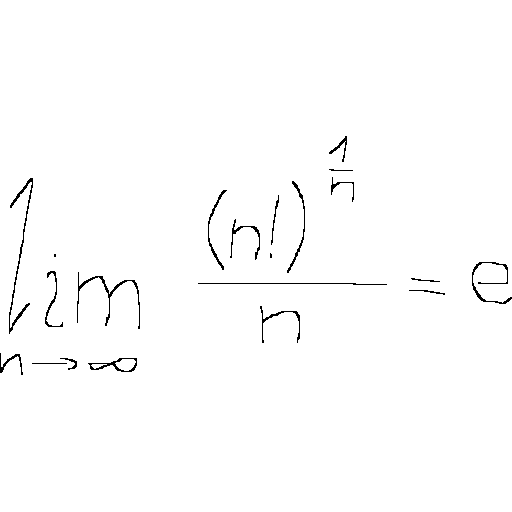 \lim_{n \to \infty} \frac{(n!)^{\frac{1}{n}}}{n} = e